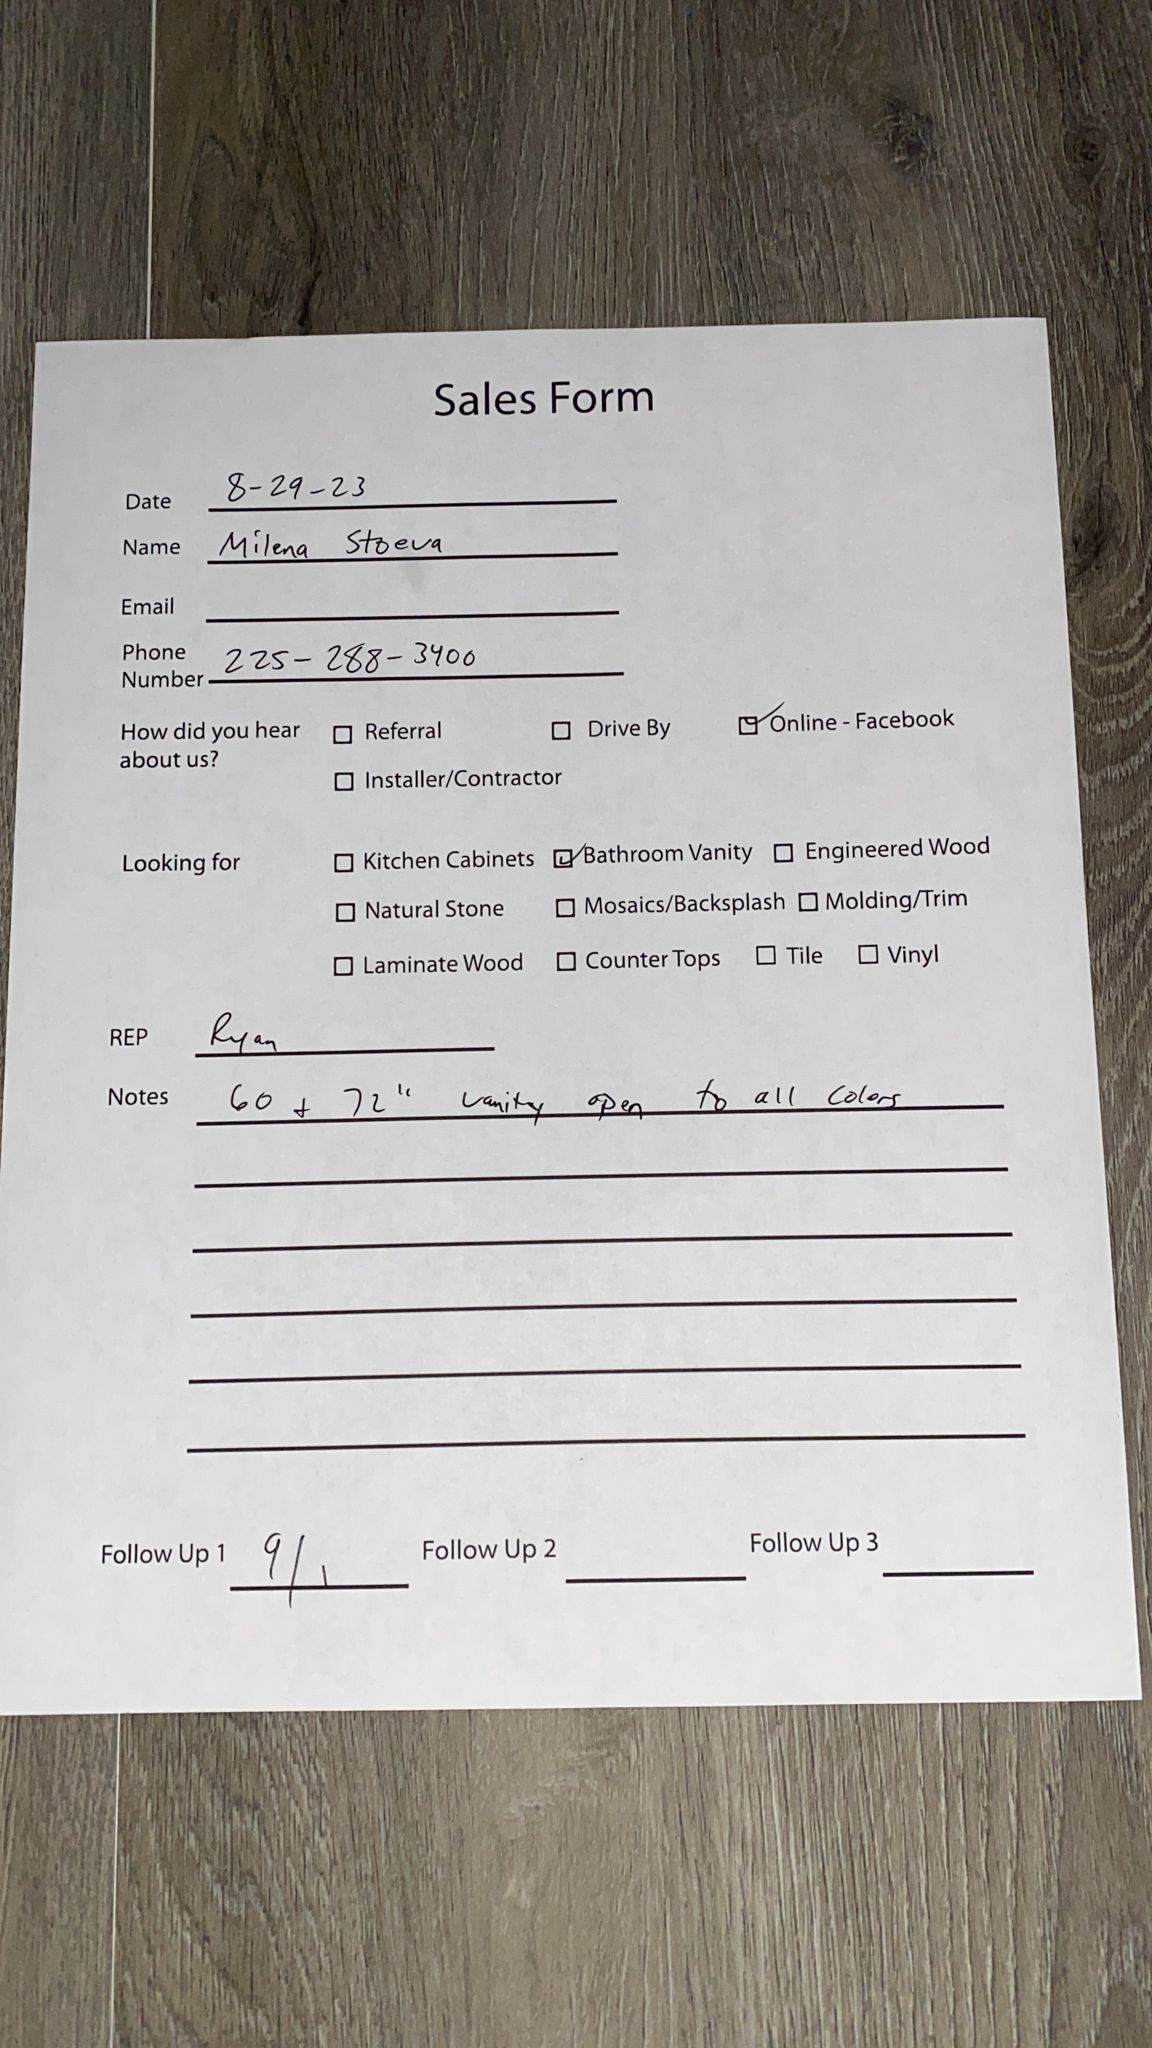 Sales Form
Date 8-29-23
Name Milena Stoeva
Email
Phone Number 225-288-3400
How did you hear about us? Referral Drive By Online - Facebook
Installer/Contractor
Looking for Kitchen Cabinets Bathroom Vanity Engineered Wood
Natural Stone Mosaics/Backsplash Molding/Trim
Laminate Wood Counter Tops Tile Vinyl
REP Ryan
Notes 60 + 72" vanity open to all colors
Follow Up 1 9/1 Follow Up 2 Follow Up 3